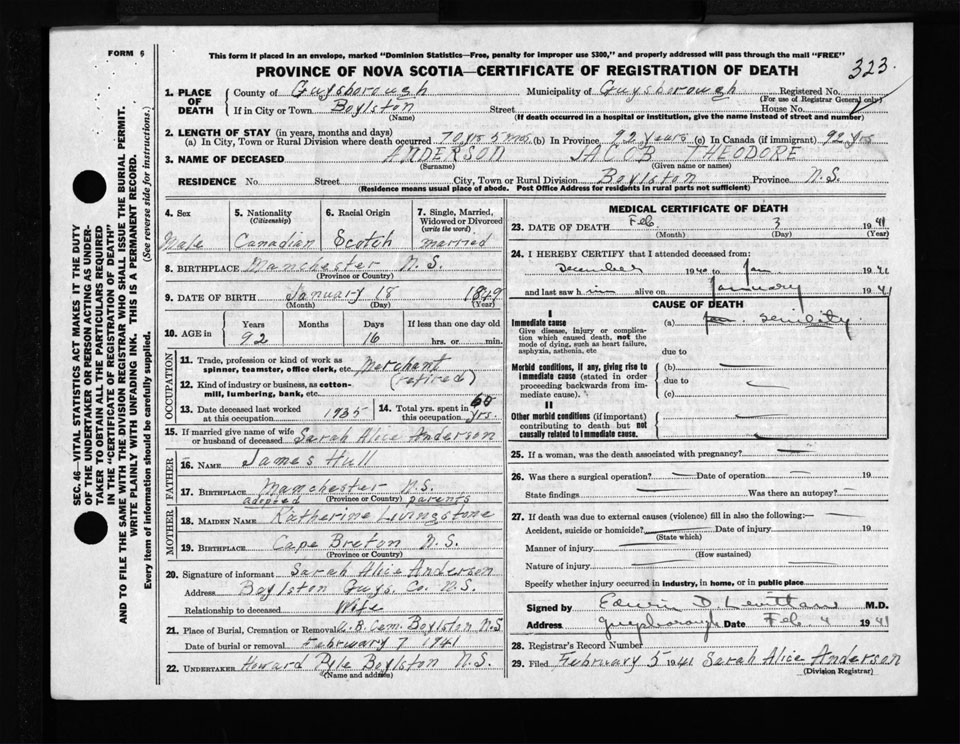 FORM 6
This form if placed in an envelope, marked "Dominion Statistics—Free, penalty for improper use $300," and properly addressed will pass through the mail "FREE"
PROVINCE OF NOVA SCOTIA—CERTIFICATE OF REGISTRATION OF DEATH
323
1. PLACE OF DEATH County of Guysborough Municipality of Guysborough Registered No.
(For use of Registrar General only)
If in City or Town Boylston Street House No.
(Name) (If death occurred in a hospital or institution, give the name instead of street and number)
2. LENGTH OF STAY (in years, months and days)
(a) In City, Town or Rural Division where death occurred 70 yrs 5 mos (b) In Province 92 years (c) In Canada (if immigrant) 92 yrs
3. NAME OF DECEASED ANDERSON JACOB THEODORE
(Surname) (Given name or names)
RESIDENCE No. Street City, Town or Rural Division Boylston Province N.S.
(Residence means usual place of abode. Post Office Address for residents in rural parts not sufficient)
4. Sex 5. Nationality (Citizenship) 6. Racial Origin 7. Single, Married, Widowed or Divorced (write the word)
Male Canadian Scotch married
8. BIRTHPLACE Manchester N.S.
(Province or Country)
9. DATE OF BIRTH January 18 1849
(Month) (Day) (Year)
10. AGE in Years Months Days If less than one day old
92 16 hrs. or min.
OCCUPATION
11. Trade, profession or kind of work as spinner, teamster, office clerk, etc. Merchant
(retired)
12. Kind of industry or business, as cotton-mill, lumbering, bank, etc.
13. Date deceased last worked at this occupation 1935 14. Total yrs. spent in this occupation 60 yrs.
15. If married give name of wife or husband of deceased Sarah Alice Anderson
FATHER
16. NAME James Hull
17. BIRTHPLACE Manchester N.S.
adopted (Province or Country) parents
MOTHER
18. MAIDEN NAME Katherine Livingstone
19. BIRTHPLACE Cape Breton N.S.
(Province or Country)
20. Signature of informant Sarah Alice Anderson
Address Boylston Guys. Co. N.S.
Relationship to deceased Wife
21. Place of Burial, Cremation or Removal U.B. Cem. Boylston N.S
Date of burial or removal February 7 1941
22. UNDERTAKER Howard Pyle Boylston N.S.
(Name and address)
MEDICAL CERTIFICATE OF DEATH
23. DATE OF DEATH Feb. 3 1941
(Month) (Day) (Year)
24. I HEREBY CERTIFY that I attended deceased from:
December 1940 to Jan 1941
and last saw him alive on January 1941
CAUSE OF DEATH
I
Immediate cause (a) senility
Give disease, injury or complication which caused death, not the mode of dying, such as heart failure, asphyxia, asthenia, etc
due to
Morbid conditions, if any, giving rise to immediate cause (stated in order proceeding backwards from immediate cause) (b)
due to
(c)
II
Other morbid conditions (if important) contributing to death but not causally related to immediate cause.
25. If a woman, was the death associated with pregnancy?
26. Was there a surgical operation? Date of operation 19
State findings Was there an autopsy?
27. If death was due to external causes (violence) fill in also the following:
Accident, suicide or homicide? Date of injury 19
(State which)
Manner of injury
(How sustained)
Nature of injury
Specify whether injury occurred in industry, in home, or in public place
Signed by Edwin D M.D.
Address Guysborough Date Feb 4 1941
28. Registrar's Record Number
29. Filed February 5 1941 Sarah Alice Anderson
(Division Registrar)
SEC. 46—VITAL STATISTICS ACT MAKES IT THE DUTY
OF THE UNDERTAKER OR PERSON ACTING AS UNDERTAKER
TO OBTAIN ALL THE PARTICULARS REQUIRED
IN THE "CERTIFICATE OF REGISTRATION OF DEATH"
AND TO FILE THE SAME WITH THE DIVISION REGISTRAR WHO SHALL ISSUE THE BURIAL PERMIT.
WRITE PLAINLY WITH UNFADING INK. THIS IS A PERMANENT RECORD.
Every item of information should be carefully supplied. (See reverse side for instructions.)